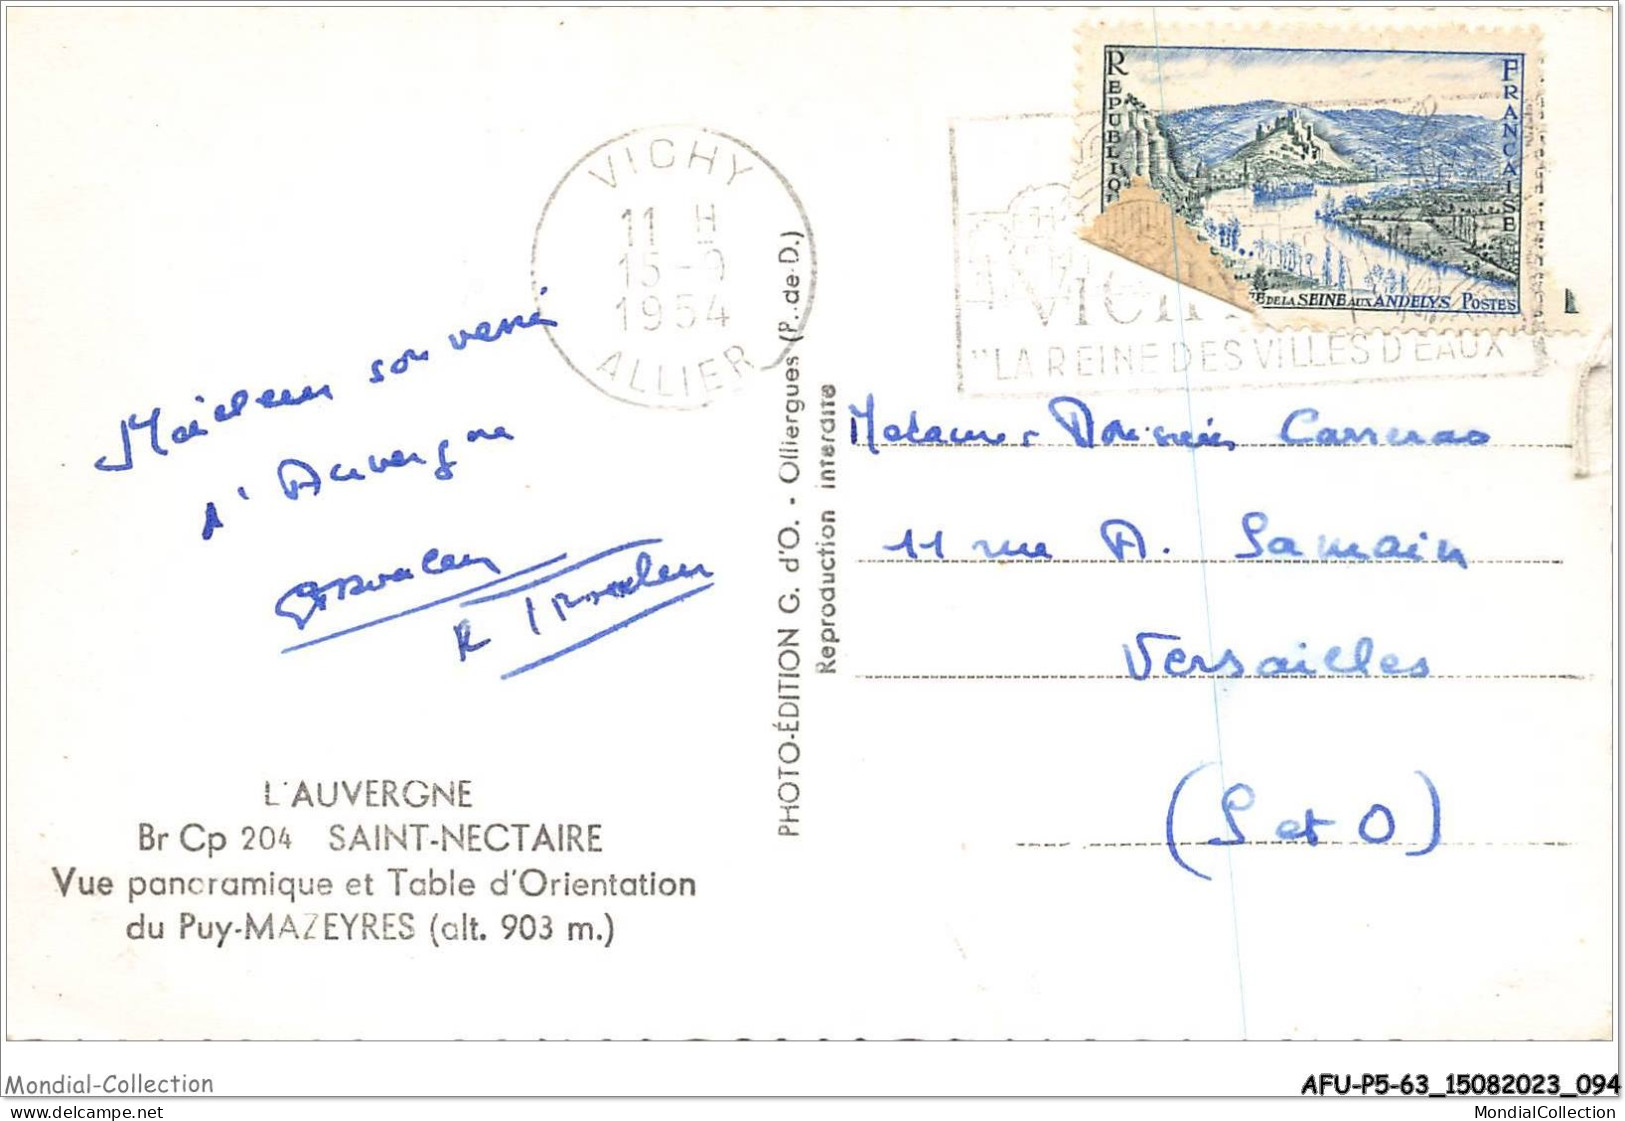 VICHY
11 H
15-9
1954
ALLIER
VICHY
"LA REINE DES VILLES D'EAUX"
REPUBLIQU
FRANCAISE
DE LA SEINE AUX ANDELYS POSTES
Meilleur souvenir
d'Auvergne
PHOTO-ÉDITION G. d'O. - Olliergues (P.-de-D.)
Reproduction interdite
Carreras
11 rue A. Samain
Versailles
(S et O)
L'AUVERGNE
Br Cp 204 SAINT-NECTAIRE
Vue panoramique et Table d'Orientation
du Puy-MAZEYRES (alt. 903 m.)
Mondial-Collection
www.delcampe.net
AFU-P5-63_15082023_094
MondialCollection